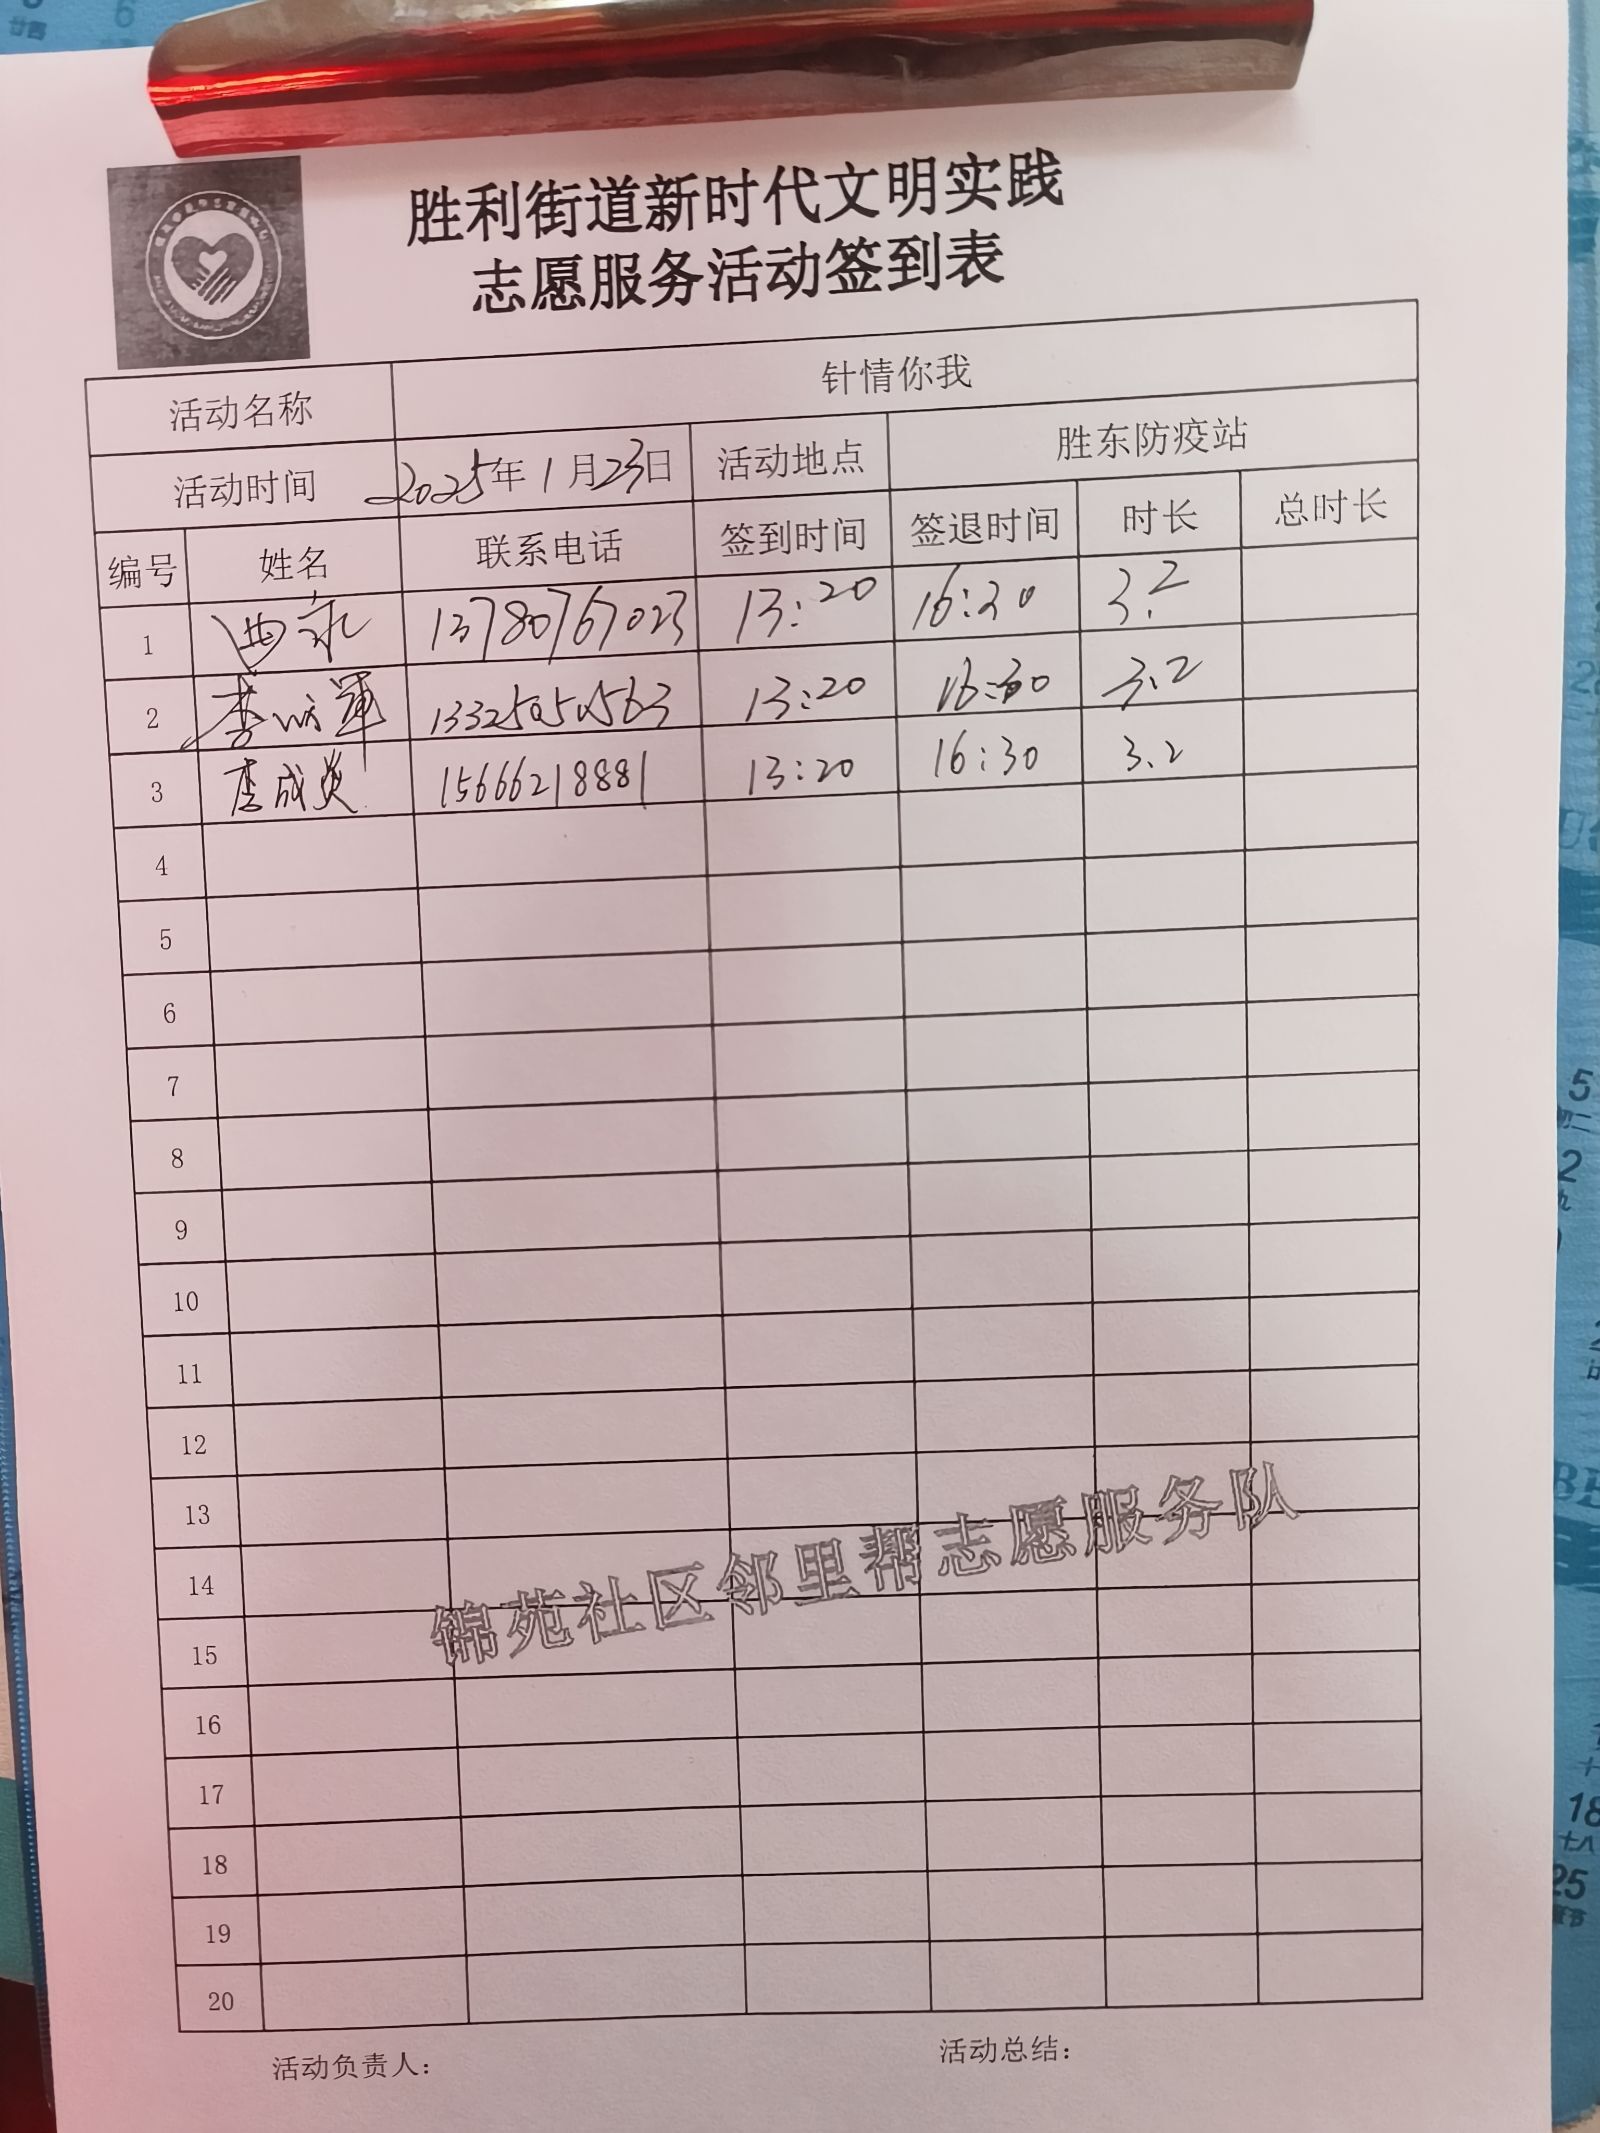 胜利街道新时代文明实践
志愿服务活动签到表
活动名称 针情你我
活动时间 2025年1月23日 活动地点 胜东防疫站
编号 姓名 联系电话 签到时间 签退时间 时长 总时长
1 13780767023 13:20 16:30 3.2
2 李 军 13:20 16:30 3.2
3 李成英 15666218881 13:20 16:30 3.2
4
5
6
7
8
9
10
11
12
13
14
15
16
17
18
19
20
锦苑社区邻里帮志愿服务队
活动负责人: 活动总结:
5
2
18
十八
25